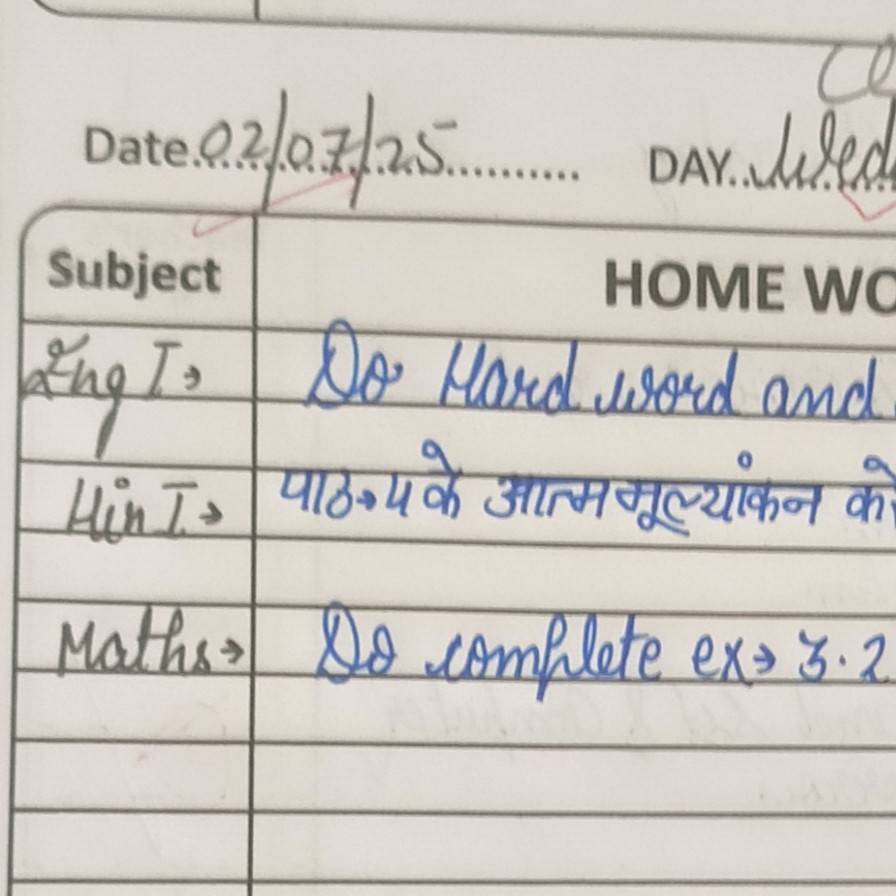 Date.02/07/25.......... DAY..Wed
Subject HOME WO
Eng I→ Do Hard word and
Hin I→ पाठ→4 के आत्ममूल्यांकन को
Maths→ Do complete ex→ 3.2